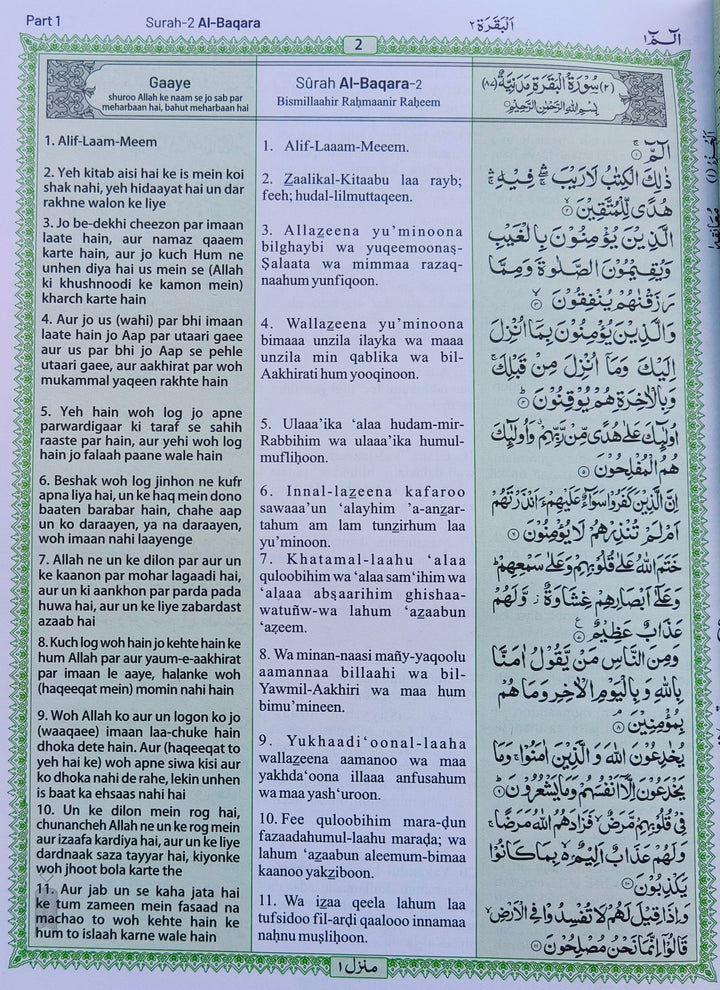 Part 1
Surah-2 Al-Baqara
اَلْبَقَرَة ٢
الٓمّٓ ١
2
Gaaye
shuroo Allah ke naam se jo sab par
meharbaan hai, bahut meharbaan hai
1. Alif-Laam-Meem
2. Yeh kitab aisi hai ke is mein koi
shak nahi, yeh hidaayat hai un dar
rakhne walon ke liye
3. Jo be-dekhi cheezon par imaan
laate hain, aur namaz qaaem
karte hain, aur jo kuch Hum ne
unhen diya hai us mein se (Allah
ki khushnoodi ke kamon mein)
kharch karte hain
4. Aur jo us (wahi) par bhi imaan
laate hain jo Aap par utaari gaee
aur us par bhi jo Aap se pehle
utaari gaee, aur aakhirat par woh
mukammal yaqeen rakhte hain
5. Yeh hain woh log jo apne
parwardigaar ki taraf se sahih
raaste par hain, aur yehi woh log
hain jo falaah paane wale hain
6. Beshak woh log jinhon ne kufr
apna liya hai, un ke haq mein dono
baaten barabar hain, chahe aap
un ko daraayen, ya na daraayen,
woh imaan nahi laayenge
7. Allah ne un ke dilon par aur un
ke kaanon par mohar lagaadi hai,
aur un ki aankhon par parda pada
huwa hai, aur un ke liye zabardast
azaab hai
8. Kuch log woh hain jo kehte hain ke
hum Allah par aur yaum-e-aakhirat
par imaan le aaye, halanke woh
(haqeeqat mein) momin nahi hain
9. Woh Allah ko aur un logon ko jo
(waaqaee) imaan laa-chuke hain
dhoka dete hain. Aur (haqeeqat to
yeh hai ke) woh apne siwa kisi aur
ko dhoka nahi de rahe, lekin unhen
is baat ka ehsaas nahi hai
10. Un ke dilon mein rog hai,
chunancheh Allah ne un ke rog mein
aur izaafa kardiya hai, aur un ke liye
dardnaak saza tayyar hai, kiyonke
woh jhoot bola karte the
11. Aur jab un se kaha jata hai
ke tum zameen mein fasaad na
machao to woh kehte hain ke
hum to islaah karne wale hain
Sûrah Al-Baqara-2
Bismillaahir Raḥmaanir Raḥeem
1. Alif-Laaam-Meeem.
2. Z̲aalikal-Kitaabu laa rayb;
feeh; hudal-lilmuttaqeen.
3. Allaz̲eena yu’minoona
bilghaybi wa yuqeemoonaṣ-
Ṣalaata wa mimmaa razaq-
naahum yunfiqoon.
4. Wallaz̲eena yu’minoona
bimaaa unzila ilayka wa maaa
unzila min qablika wa bil-
Aakhirati hum yooqinoon.
5. Ulaaa’ika ‘alaa hudam-mir-
Rabbihim wa ulaaa’ika humul-
mufliḥoon.
6. Innal-laz̲eena kafaroo
sawaaa’un ‘alayhim ’a-anz̲ar-
tahum am lam tunz̲irhum laa
yu’minoon.
7. Khatamal-laahu ‘alaa
quloobihim wa ‘alaa sam‘ihim wa
‘alaaa abṣaarihim ghishaa-
watuñw-wa lahum ‘az̲aabun
‘aẓeem.
8. Wa minan-naasi mañy-yaqoolu
aamannaa billaahi wa bil-
Yawmil-Aakhiri wa maa hum
bimu’mineen.
9. Yukhaadi‘oonal-laaha
wallaz̲eena aamanoo wa maa
yakhda‘oona illaaa anfusahum
wa maa yash‘uroon.
10. Fee quloobihim mara-ḍun
fazaadahumul-laahu maraḍa; wa
lahum ‘az̲aabun aleemum-bimaa
kaanoo yakz̲iboon.
11. Wa iz̲aa qeela lahum laa
tufsidoo fil-arḍi qaalooo innamaa
naḥnu muṣliḥoon.
(٢) سُوْرَةُ الْبَقَرَةِ مَدَنِيَّةٌ (٨٧)
بِسْمِ اللهِ الرَّحْمٰنِ الرَّحِيْمِ
الٓمّٓ ۚ ١
ذٰلِكَ الْكِتٰبُ لَا رَيْبَ ۛ فِيْهِ ۛ
هُدًى لِّلْمُتَّقِيْنَ ۙ ٢
الَّذِيْنَ يُؤْمِنُوْنَ بِالْغَيْبِ
وَيُقِيْمُوْنَ الصَّلٰوةَ وَمِمَّا
رَزَقْنٰهُمْ يُنْفِقُوْنَ ۙ ٣
وَالَّذِيْنَ يُؤْمِنُوْنَ بِمَآ اُنْزِلَ
اِلَيْكَ وَمَآ اُنْزِلَ مِنْ قَبْلِكَ ۚ
وَبِالْاٰخِرَةِ هُمْ يُوْقِنُوْنَ ۗ ٤
اُولٰٓئِكَ عَلٰى هُدًى مِّنْ رَّبِّهِمْ ۗ وَاُولٰٓئِكَ
هُمُ الْمُفْلِحُوْنَ ٥
اِنَّ الَّذِيْنَ كَفَرُوْا سَوَآءٌ عَلَيْهِمْ ءَاَنْذَرْتَهُمْ
اَمْ لَمْ تُنْذِرْهُمْ لَا يُؤْمِنُوْنَ ٦
خَتَمَ اللهُ عَلٰى قُلُوْبِهِمْ وَعَلٰى سَمْعِهِمْ ۗ
وَعَلٰٓى اَبْصَارِهِمْ غِشَاوَةٌ ۡ وَّلَهُمْ
عَذَابٌ عَظِيْمٌ ٧
وَمِنَ النَّاسِ مَنْ يَّقُوْلُ اٰمَنَّا
بِاللهِ وَبِالْيَوْمِ الْاٰخِرِ وَمَا هُمْ
بِمُؤْمِنِيْنَ ۘ ٨
يُخٰدِعُوْنَ اللهَ وَالَّذِيْنَ اٰمَنُوْا ۚ وَمَا
يَخْدَعُوْنَ اِلَّآ اَنْفُسَهُمْ وَمَا يَشْعُرُوْنَ ۗ ٩
فِيْ قُلُوْبِهِمْ مَّرَضٌ ۙ فَزَادَهُمُ اللهُ مَرَضًا ۚ
وَلَهُمْ عَذَابٌ اَلِيْمٌ ۙ بِمَا كَانُوْا
يَكْذِبُوْنَ ١٠
وَاِذَا قِيْلَ لَهُمْ لَا تُفْسِدُوْا فِي الْاَرْضِ ۙ
قَالُوْٓا اِنَّمَا نَحْنُ مُصْلِحُوْنَ ١١
منزل ١